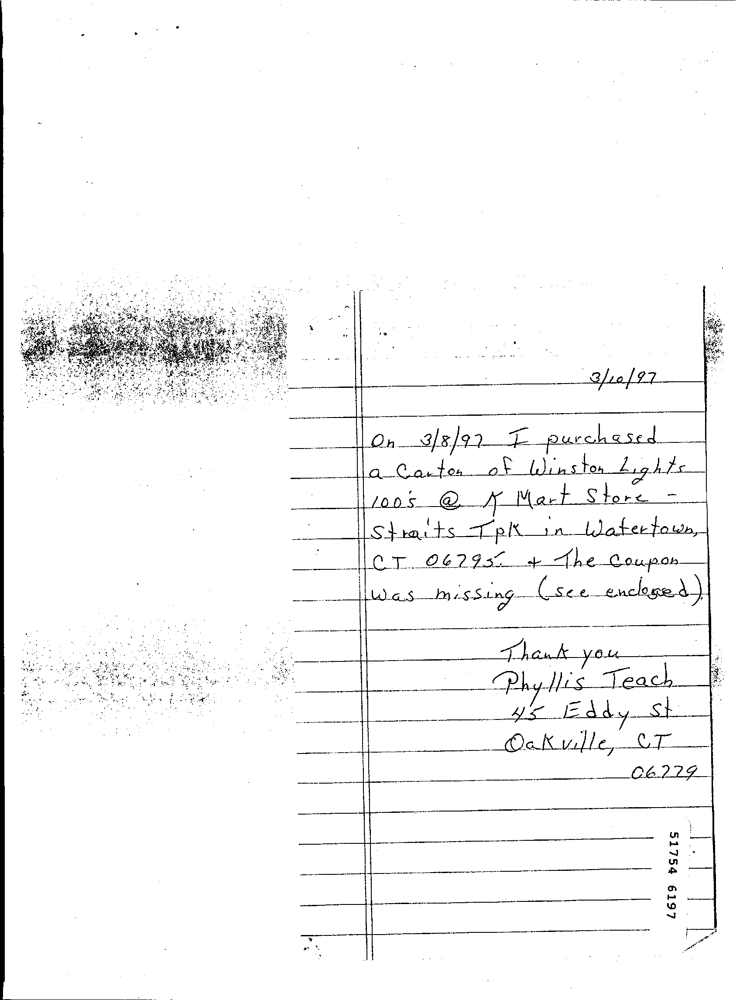 3/10/97
On 3/8/97 I purchased
a Carton of Winston Lights
100's @ K Mart Store -
Straits Tpk in Watertown,
CT 06795. + The Coupon
was missing (see enclosed).
Thank you
Phyllis Teach
45 Eddy St
Oakville, CT
06779
51754 6197